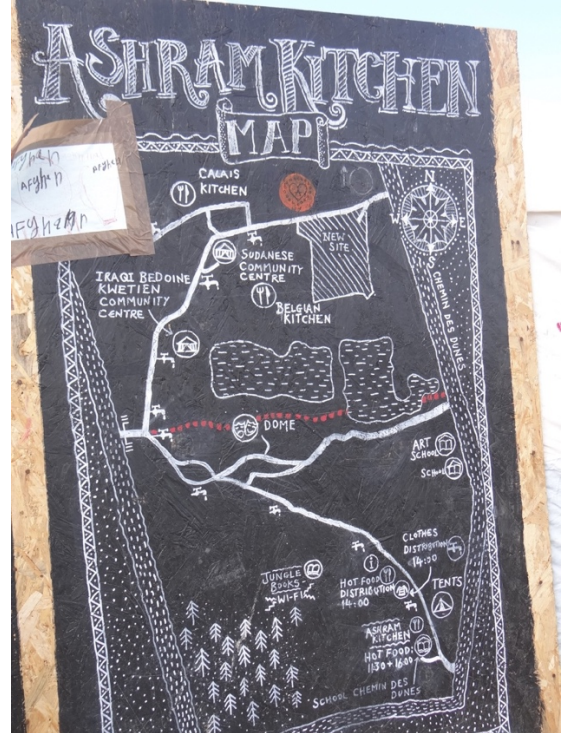 ASHRAM KITCHEN
MAP
Afghan
AFghan
CALAIS
KITCHEN
N
W
E
S
NEW
SITE
SUDANESE
COMMUNITY
CENTRE
IRAQI BEDOINE
KWETIEN
COMMUNITY
CENTRE
BELGIAN
KITCHEN
CHEMIN DES DUNES
DOME
ART
SCHOOL
SCHOOL
CLOTHES
DISTRIBUTION
14:00
i
JUNGLE
BOOKS
WI-FI
HOT FOOD
DISTRIBUTION
14-00
TENTS
ASHRAM
KITCHEN
HOT FOOD:
11:30 + 16:00
SCHOOL CHEMIN DES
DUNES